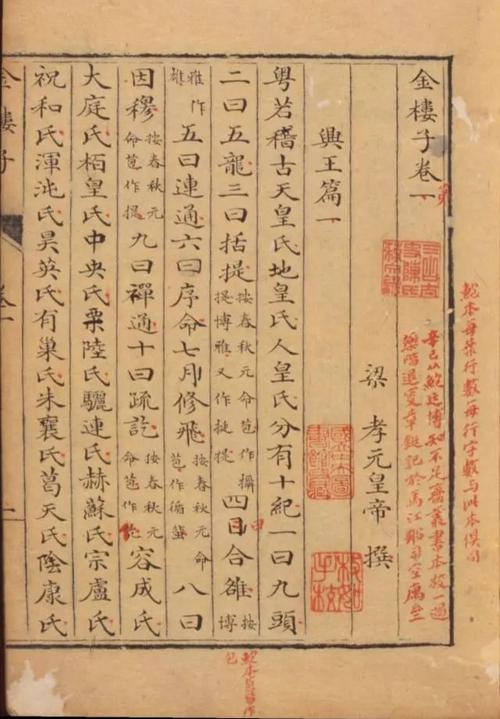 鮑本每葉行數每行字數与此本俱同
辛巳以鮑廷博知不足齋叢書本校一過
金樓子卷一
梁 孝元皇帝 撰
興王篇一
粤若稽古天皇氏地皇氏人皇氏分有十紀一曰九頭
二曰五龍三曰括提按春秋元命苞作攝提博雅又作挻提四曰合雒按博
雅作雄五曰連通六曰序命七月修飛按春秋元命苞作循蜚八曰
因穆按春秋元命苞作提九曰禪通十曰疏訖按春秋元命苞作仡容成氏
大庭氏栢皇氏中央氏栗陸氏驪連氏赫蘇氏宗盧氏
祝和氏渾沌氏昊英氏有巢氏朱襄氏葛天氏陰康氏
金樓子
卷一
一